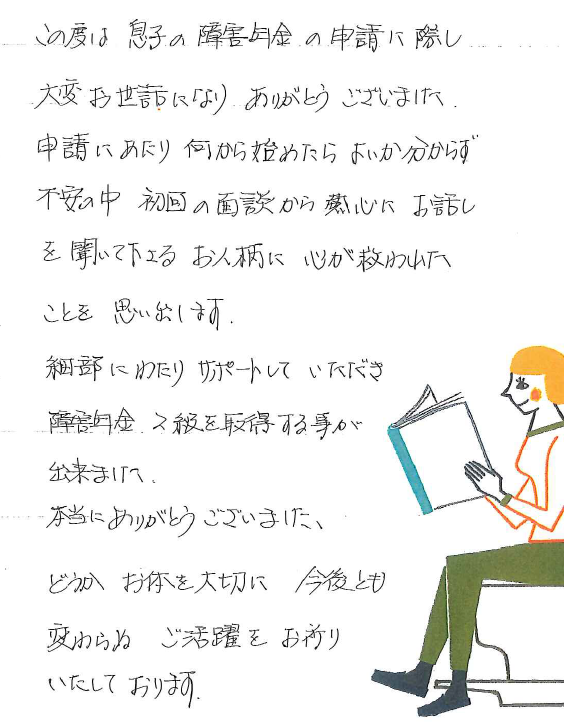 この度は 息子の 障害年金 の申請に際し
大変お世話になり ありがとう ございました.
申請にあたり 何から始めたら よいか分からず
不安の中 初回の面談から 熱心に お話し
を 聞いて下さる お人柄に 心が救われた
ことを 思い出します.
細部にわたり サポートして いただき
障害年金 2級を取得する事が
出来ました.
本当にありがとうございました、
どうか お体を大切に 今後とも
変わらぬ ご活躍を お祈り
いたして おります.